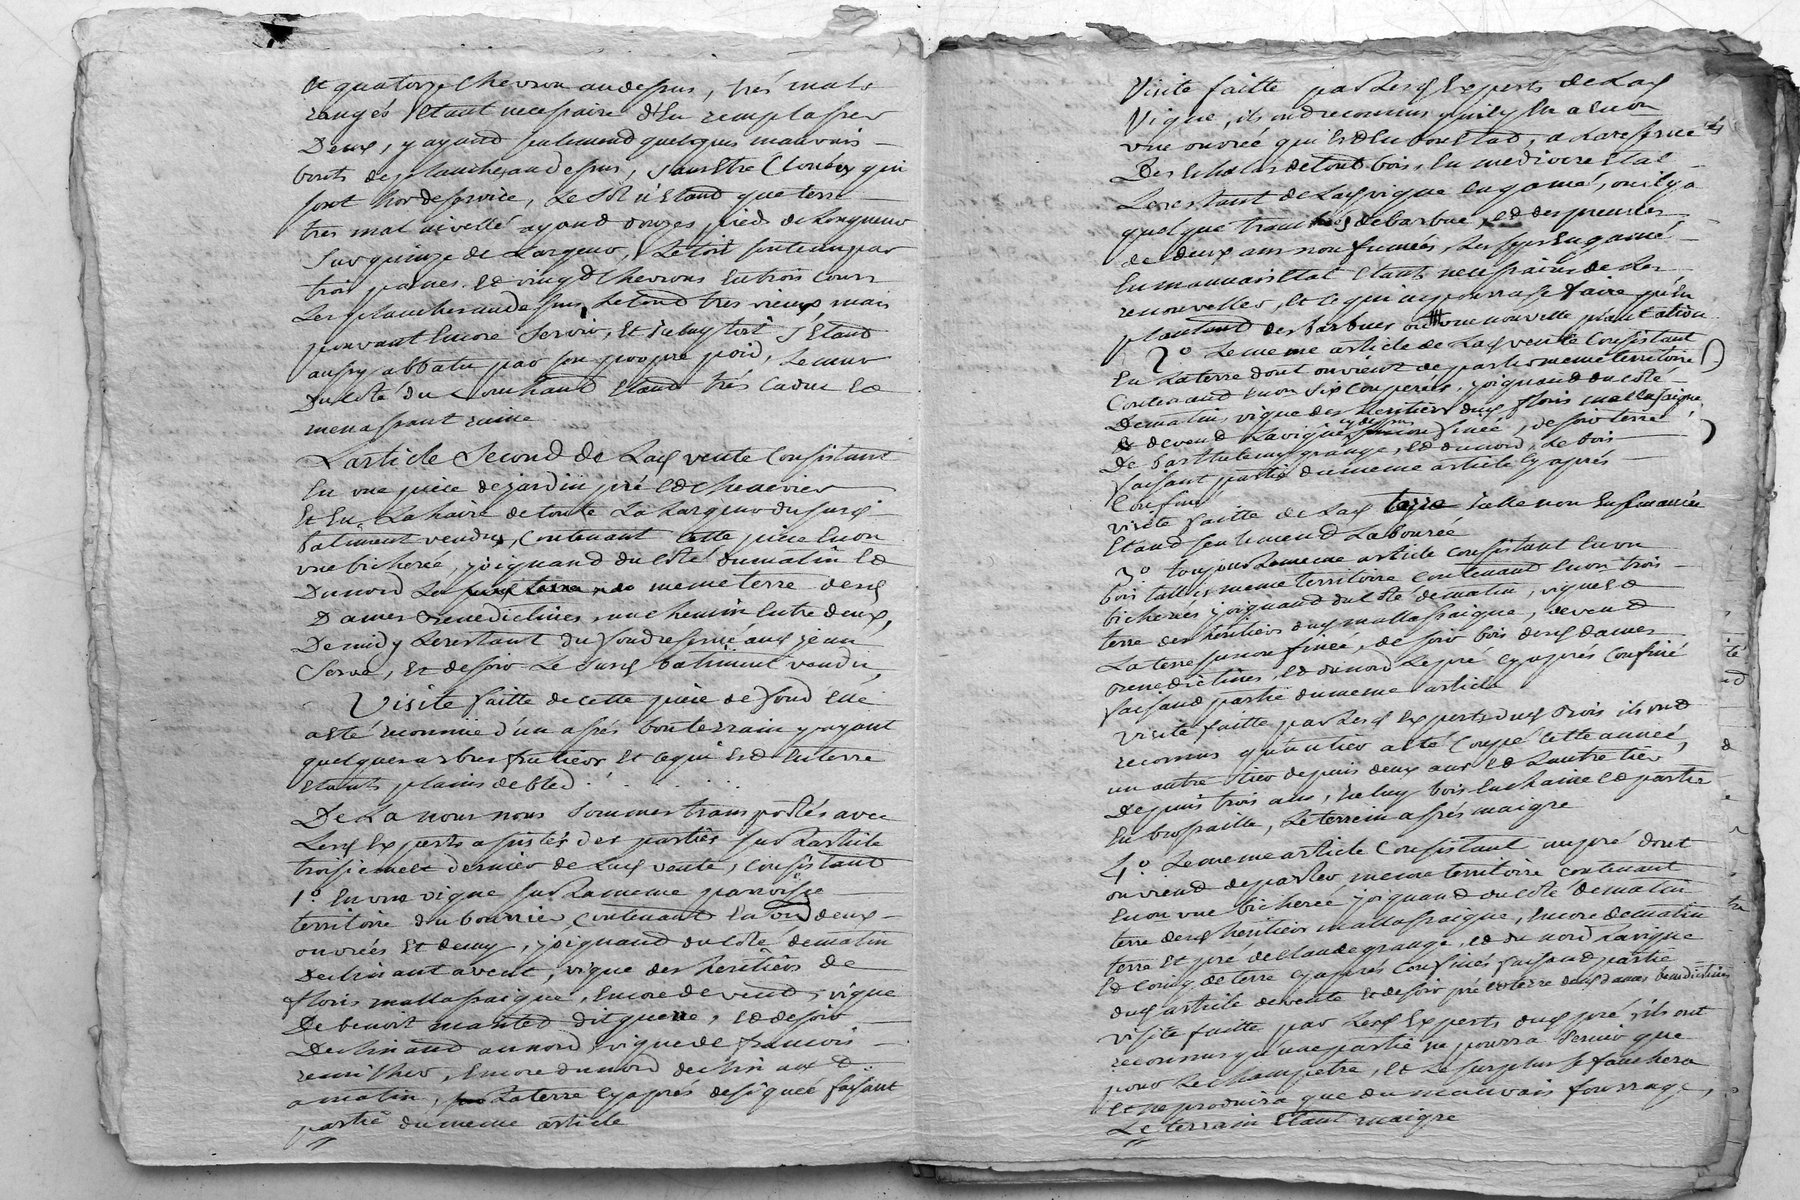 et quatorze chevron audessus, trés mals
rangés étant necessaire d'En remplasser
Deux, y ayand seulemend quelques mauvais
bouts de planche audessus, sans Etre Clouées qui
sont hor de service, Le sol n'Etand que terre
tres mal nivellé ayand douzes pieds de Longueur
sur quinze de Largeur, Le toit soutenu par
trois pannes Ed vingd Chevrons En trois Cours
Les planches audessus, Le toud tres vieux mais
pouvant Encore servir, Et icelluy toit s'Etand
aussy abbatu par son propre poid, Le mur
Du Cоté du Couchand Etand trés Caduc Ed
menassant ruine
L'article Second de Lad vente Consistant
En une piece de jardin pré Ed Chenevier
Et En La haire de toute La Largeur du susd
batiment vendu, Contenant cette piece Environ
une bicherée, joignand du Coté du matin Ed
Du nord La meme terre desd
Dames Benedictines, un chemin Entre deux,
De midy Le restant du fond reservé aud jean
Serve, Et de soir Le susd batiment vendu,
Visite faitte de cette piece de fond Elle
a Eté reconnue d'un assés bon terrain y ayant
quelques arbres fruitiers Et ce qui Est En terre
Etants plains de bled
De La nous nous sommes transportés avec
Lesd Experts assistés des parties sur L'article
troisieme Dernier de Lad vente, Consistand
1º. En une vigne sur La meme parroisse
territoire du bourrier, Contenant Environ deux
ouvrées Et demy, joignand du Coté de matin
Declinant a vent, vigne des heritiers de
floris mallassaigne, Encore de vend, vigne
De benoit dit, Ed de soir
Declinand au nord vigne de francois
, Encore du nord declinand
a matin, La terre Cy aprés designée faisant
partie du meme article
Visite faitte par Lesd Experts de Lad
Vigne, ils ond reconnu qu'il y En a Environ
une ouvrée qui Est En bon Etat, a La reserve
Des Echalas de toud bois, En mediocre Etat
Le restant de Lad vigne , ou il y a
quelque de barbue, Ed des
de deux ans non fumées, Les
En mauvais Etat Etants necessaire de Les
renouveller, Et ce qui ne pourra se faire qu'En
plantand des barbues ou une nouvelle plantation
2º. Le meme article de Lad vente Consistant
En La terre dont on vient de parler meme territoire
Contenand Environ six Couperées, joignand du Coté
De matin, vigne des heritiers dud floris mallassaigne
De vend La vigne cy dessus confinée, de soir terre
De barthelemy grange, Ed du nord, Le bois
faisant partie du meme article Cy aprés
Confiné
Visite faitte de Lad terre icelle non Ensemancée
Etand seulemend Labourée
3º. toujours Le meme article Consistant En un
bois taillis meme territoire Contenand Environ trois
bicherées joignand du Coté de matin, vigne Ed
terre des heritiers dud mallassaigne, de vend
La terre sus confinée, de soir bois desd dames
Benedictines, Ed du nord Le pré Cy aprés Confiné
faisand partie du meme article
Visite faitte par Lesd Experts dud Bois ils ond
reconnus qu'un tier a Eté Coupé cette année,
un autre tier depuis deux ans Ed L'autre tier
Depuis trois ans, icelluy bois En chaine Ed partie
En brossaille, Le terrein assés maigre
4º. Le meme article Consistant au pré dont
on viend de parler, meme territoire contenant
Environ une bicherée joignand du Coté de matin
terre desd heritiers mallassaigne, Encore de matin
terre Et pré de Claude grange, Ed du nord La vigne
Ed Coing de terre Cy aprés Confinés faisand partie
dud article de vente Et de soir pré Et terre desd dames benedictines
Visite faitte par Lesd Experts dud pré, ils ont
reconnus qu'une partie ne pourra servir que
pour Le champetre, Et Le surplus se fauchera
Et ne produira que du mauvais fourrage,
Le terrain Etant maigre